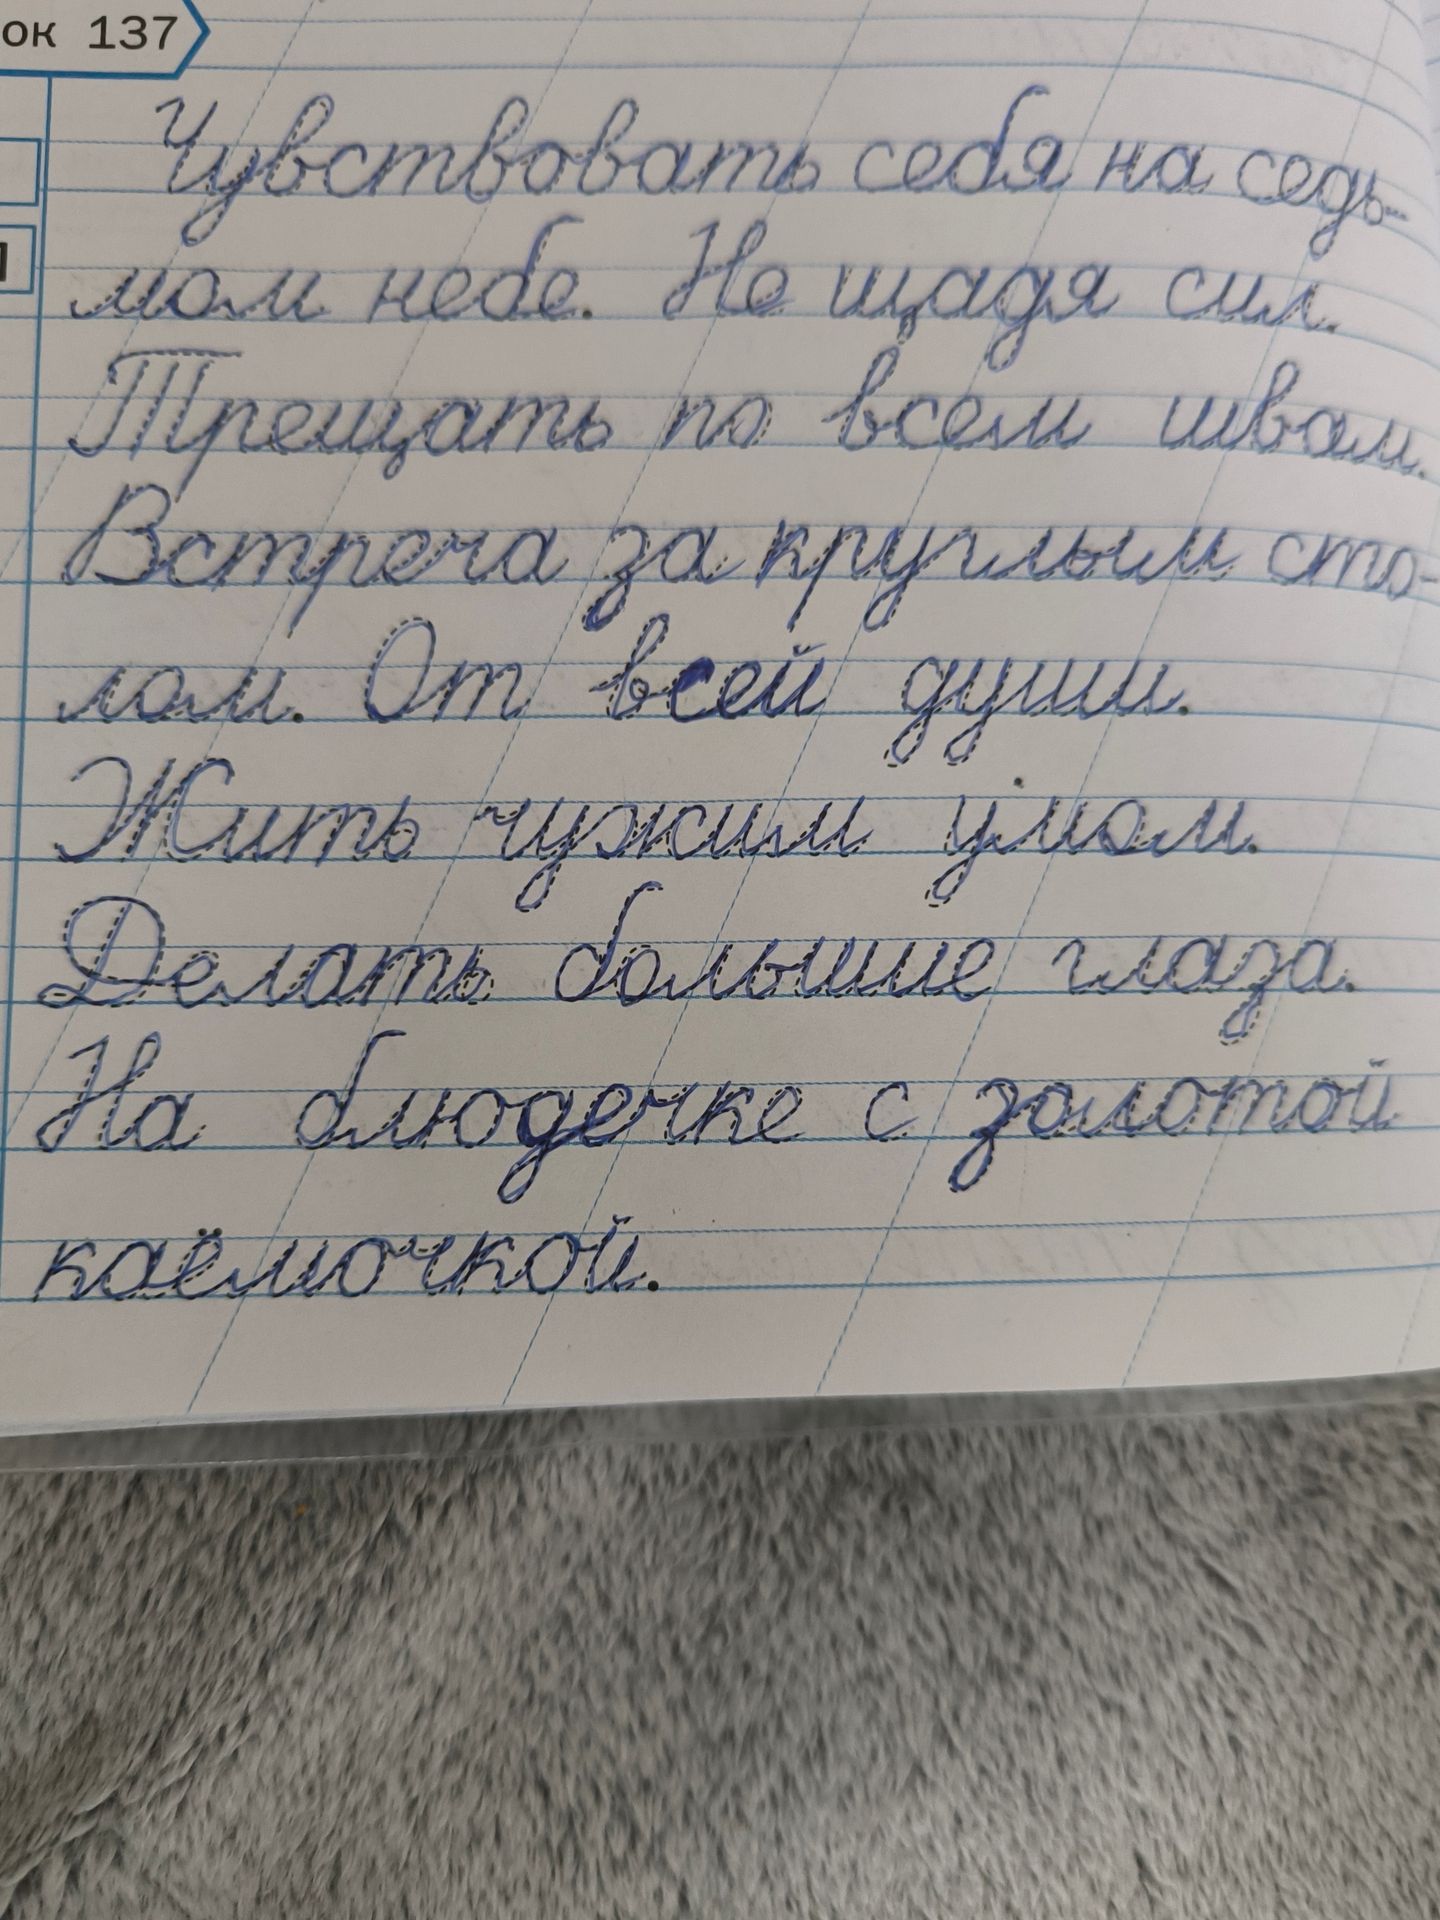 ок 137
Чувствовать себя на седь-
мом небе. Не щадя сил.
Трещать по всем швам.
Встреча за круглым сто-
лом. От всей души.
Жить чужим умом.
Делать большие глаза.
На блюдечке с золотой
каёмочкой.